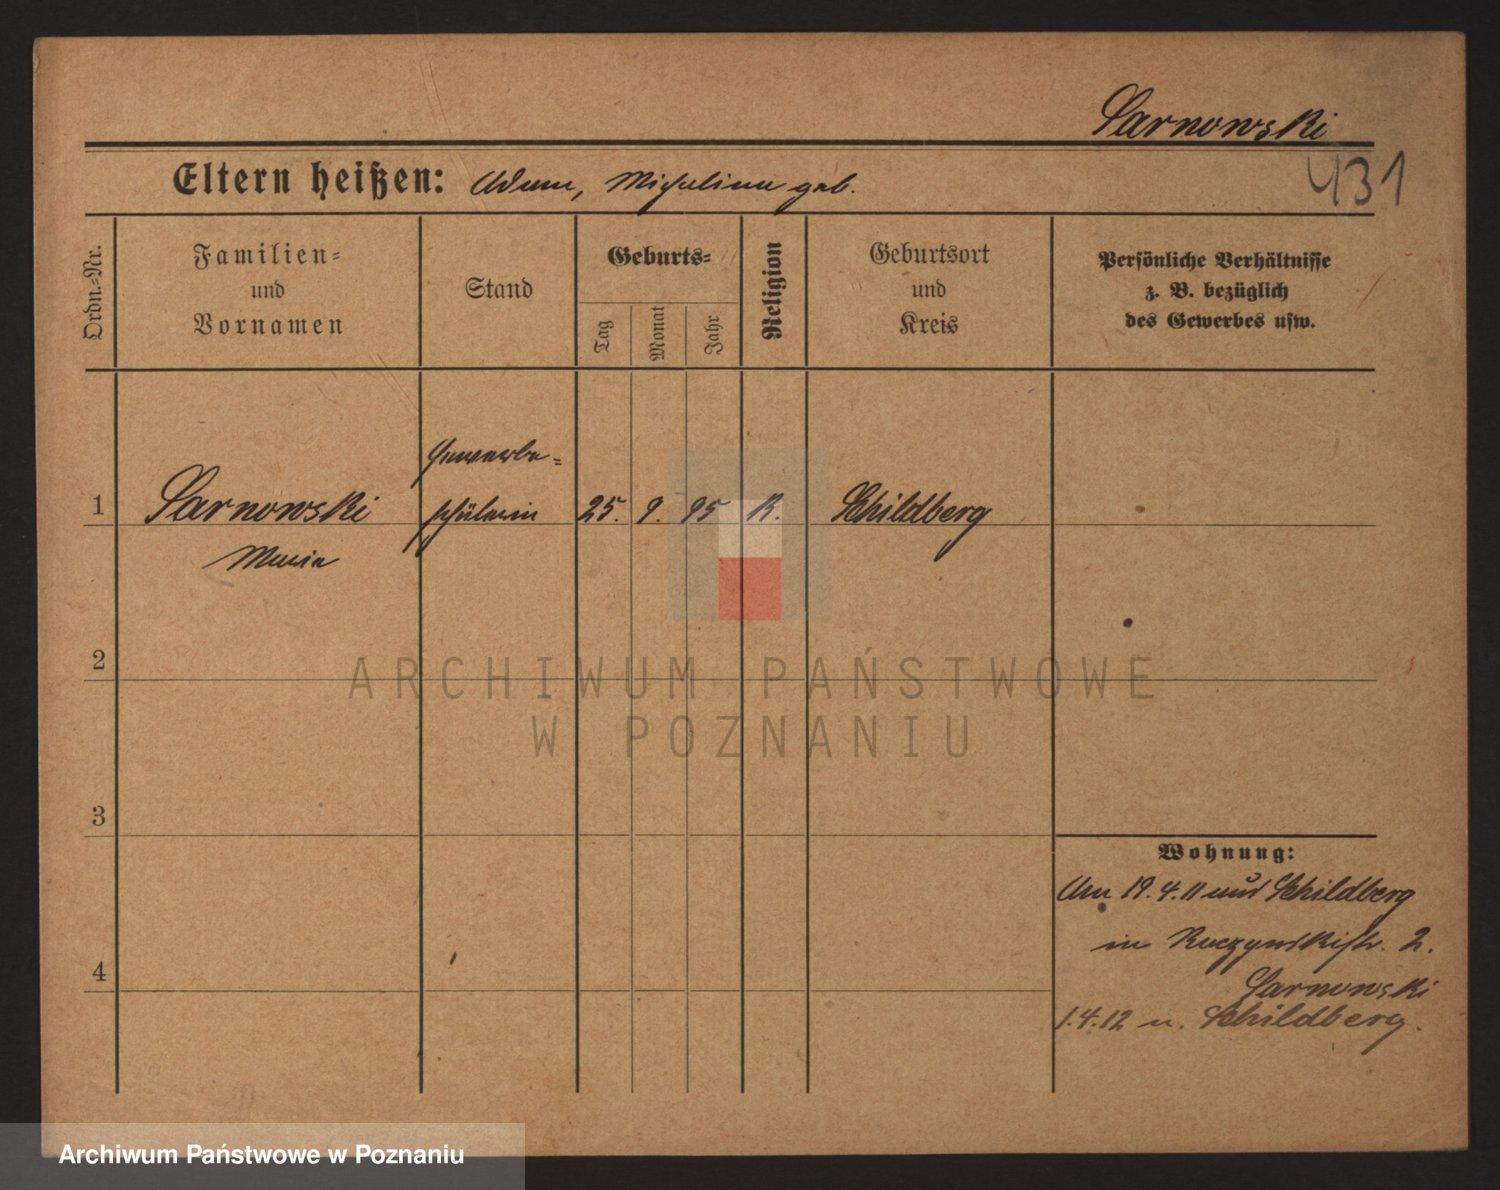 Sarnowski
431
Eltern heißen: Adam, Michalina geb.
Ordn.-Nr.
Familien-
und
Vornamen
Stand
Geburts-
Tag
Monat
Jahr
Religion
Geburtsort
und
Kreis
Persönliche Verhältnisse
z. B. bezüglich
des Gewerbes usw.
Gewerbe-
1 Sarnowski schülerin 25. 9. 95 K. Schildberg
Maria
2
3
4
Wohnung:
Am 19.4.11 aus Schildberg
in Raczynskistr. 2.
Sarnowski
1.4.12 n. Schildberg.
ARCHIWUM PAŃSTWOWE
W POZNANIU
Archiwum Państwowe w Poznaniu